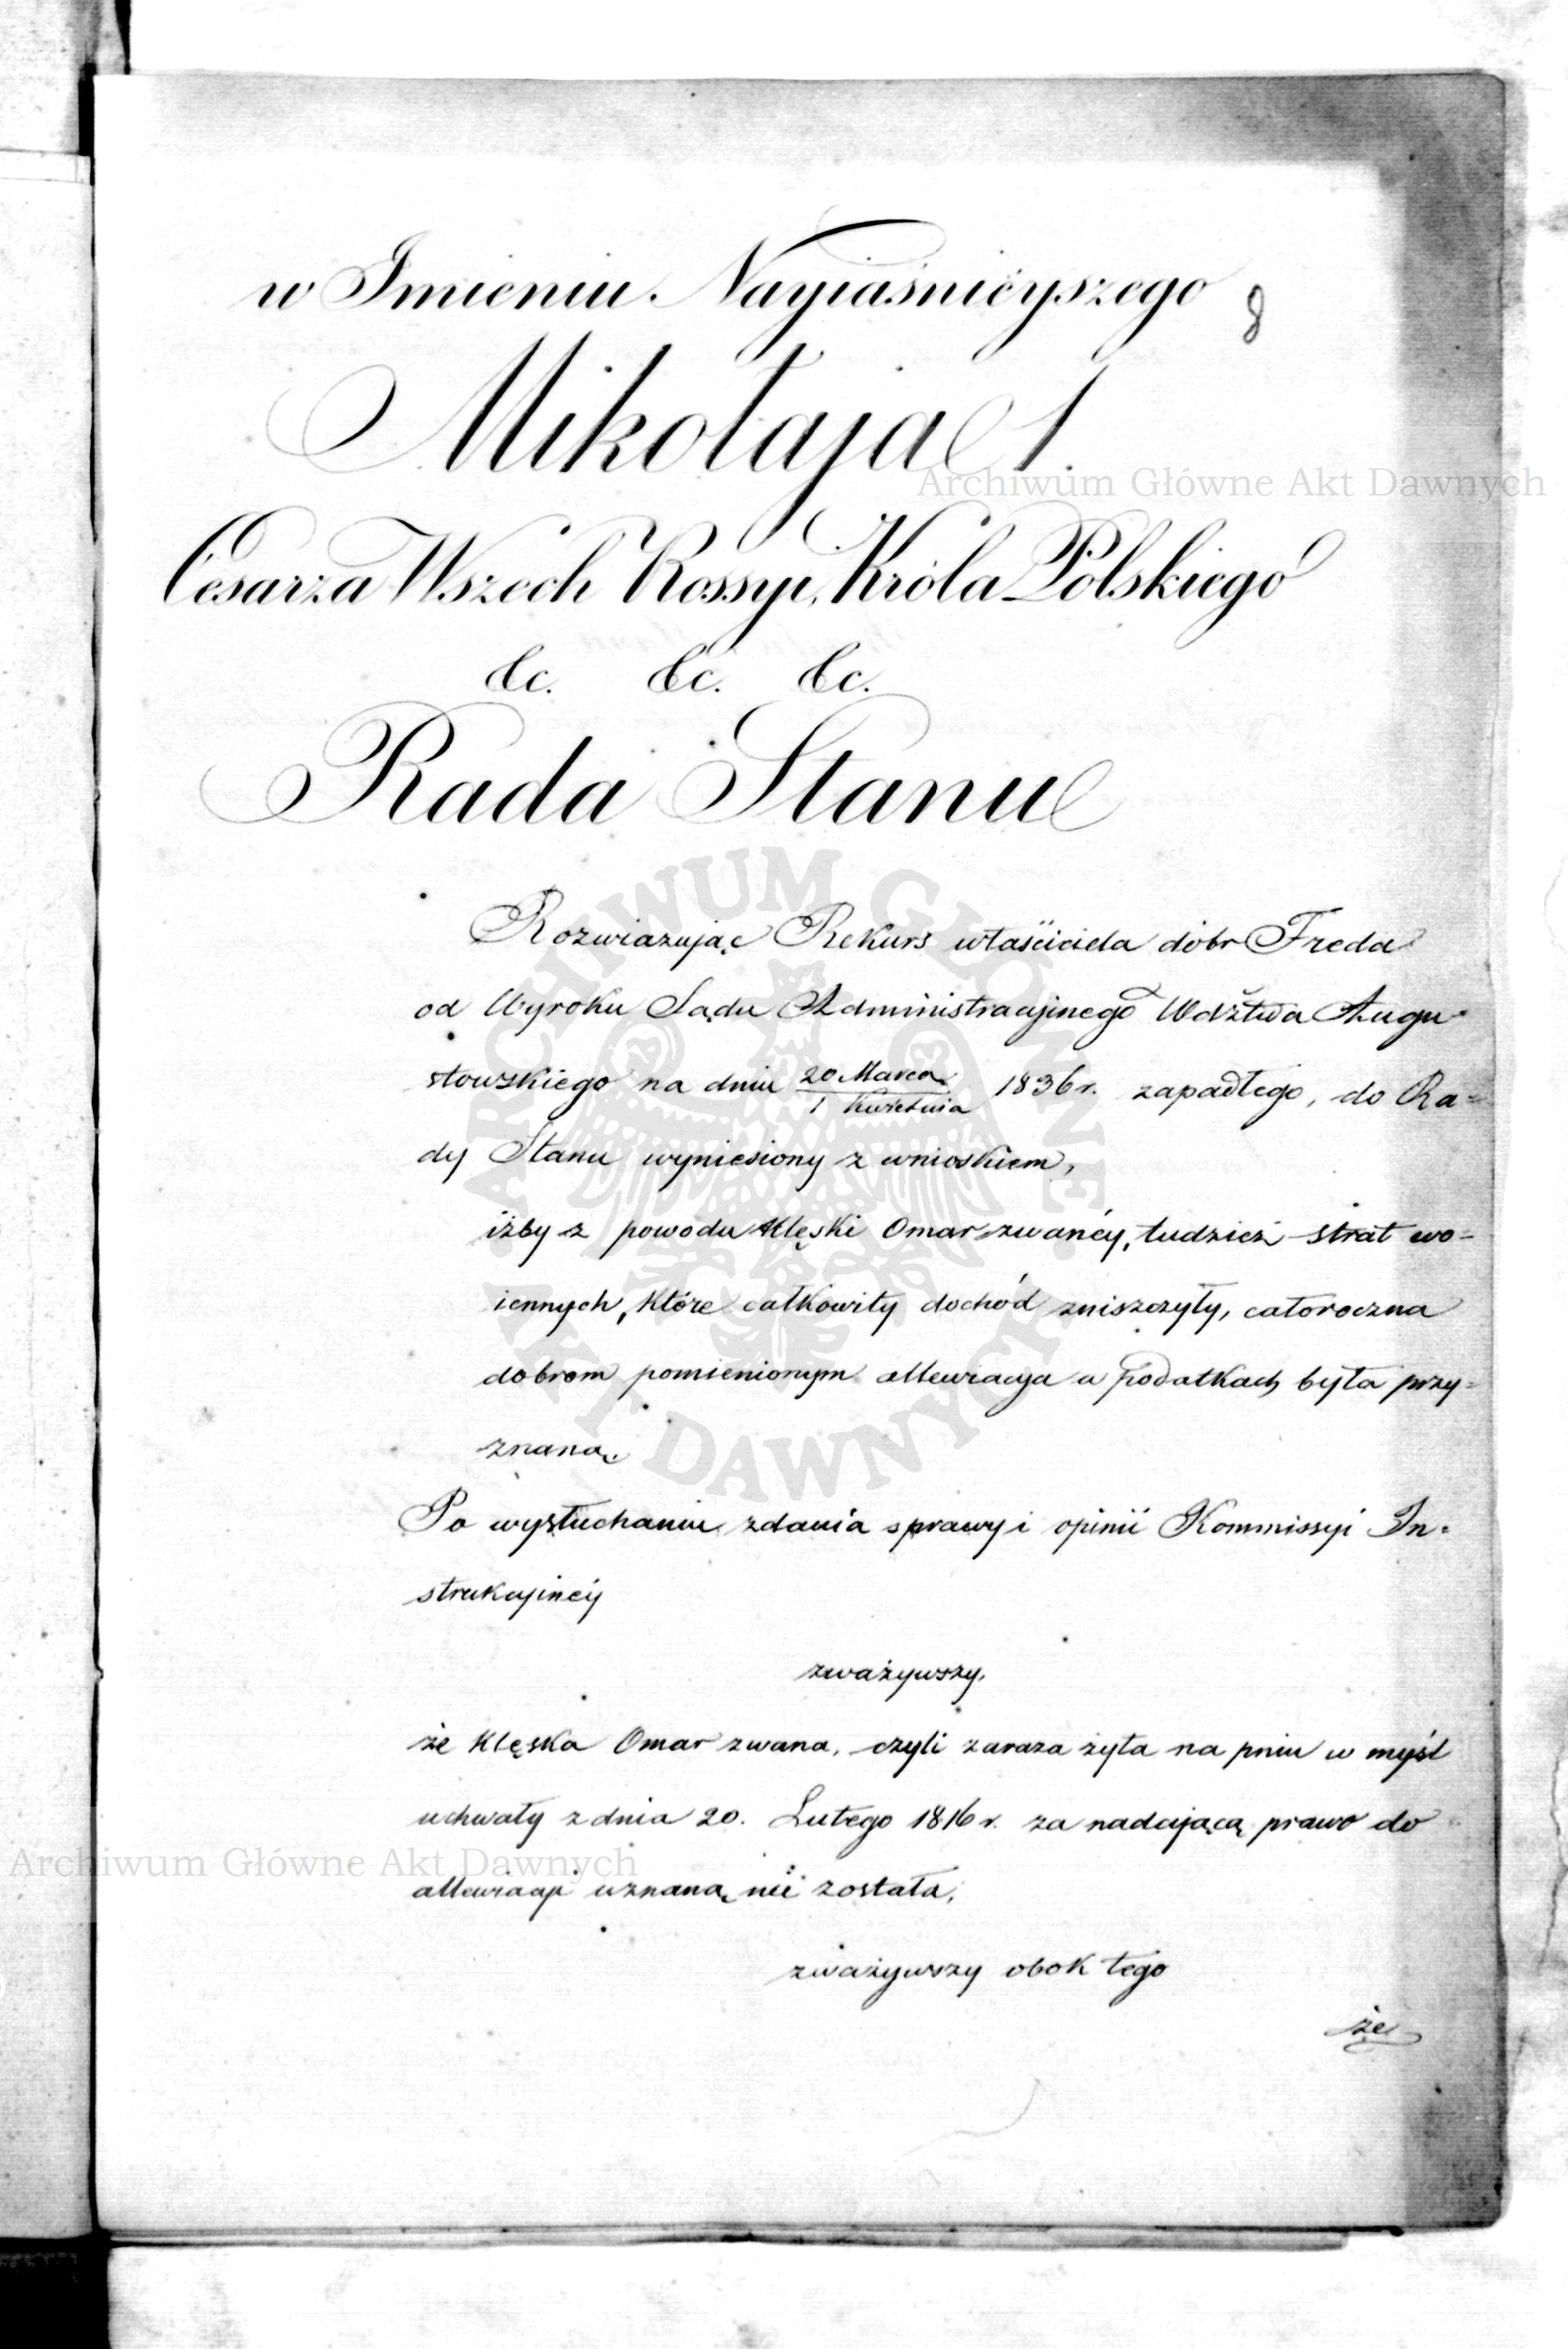 w Imieniu Nayiaśnieyszego
8
Mikołaja I.
Cesarza Wszech Rossyi, Króla Polskiego
&c. &c. &c.
Rada Stanu
Rozwiazując Rekurs właściciela dóbr Freda
od Wyroku Sądu Administracyjnego Wdztwa Augu-
stowskiego na dniu 20 Marca / 1 Kwietnia 1836 r. zapadłego, do Ra-
dy Stanu wyniesiony z wnioskiem,
iżby z powodu klęski Omar zwanéy, tudzież strat wo-
iennych, które całkowity dochód zniszczyły, całoroczna
dobrom pomienionym allewiacya w podatkach była przy-
znaną.
Po wysłuchaniu zdania sprawy i opinii Kommissyi In-
strukcyinéy
zważywszy,
że klęska Omar zwana, czyli zaraza żyta na pniu w myśl
uchwały z dnia 20. Lutego 1816 r. za nadającą prawo do
allewiacyi uznaną nie została,
zważywszy obok tego
że
Archiwum Główne Akt Dawnych
ARCHIWUM GŁÓWNE AKT DAWNYCH
Archiwum Główne Akt Dawnych